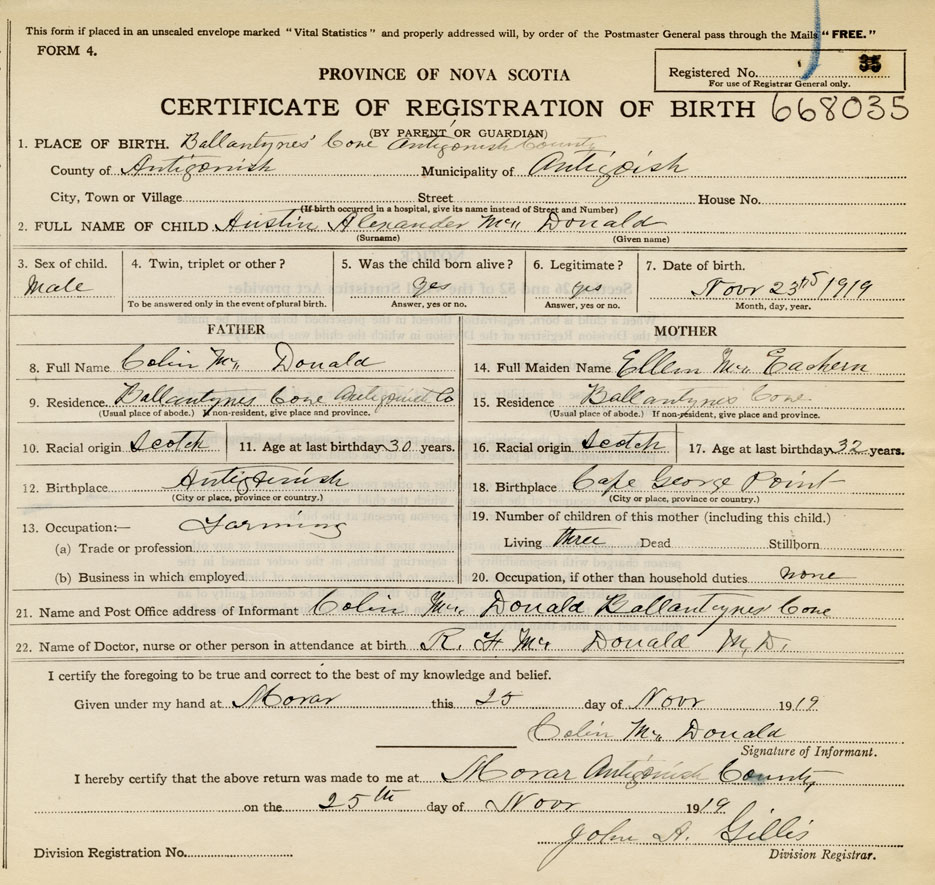 This form if placed in an unsealed envelope marked "Vital Statistics" and properly addressed will, by order of the Postmaster General pass through the Mails "FREE."
FORM 4.
PROVINCE OF NOVA SCOTIA
Registered No. 35
For use of Registrar General only.
CERTIFICATE OF REGISTRATION OF BIRTH 668035
(BY PARENT OR GUARDIAN)
1. PLACE OF BIRTH. Ballantynes' Cove Antigonish County
County of Antigonish Municipality of Antigoish
City, Town or Village Street House No.
(If birth occurred in a hospital, give its name instead of Street and Number)
2. FULL NAME OF CHILD Austin Alexander Mc Donald
(Surname) (Given name)
3. Sex of child. 4. Twin, triplet or other? 5. Was the child born alive? 6. Legitimate? 7. Date of birth.
Male yes yes Novr 23rd 1919
To be answered only in the event of plural birth. Answer, yes or no. Answer, yes or no. Month, day, year.
FATHER MOTHER
8. Full Name Colin Mc Donald 14. Full Maiden Name Ellen Mc Eachern
9. Residence Ballantynes Cove Antigonish Co 15. Residence Ballantynes Cove
(Usual place of abode.) If non-resident, give place and province. (Usual place of abode.) If non-resident, give place and province.
10. Racial origin Scotch 11. Age at last birthday 30 years. 16. Racial origin Scotch 17. Age at last birthday 32 years.
12. Birthplace Antigonish 18. Birthplace Cape George Point
(City or place, province or country.) (City or place, province or country.)
13. Occupation:— Farming 19. Number of children of this mother (including this child.)
(a) Trade or profession Living three Dead Stillborn
(b) Business in which employed 20. Occupation, if other than household duties none
21. Name and Post Office address of Informant Colin Mc Donald Ballantynes Cove
22. Name of Doctor, nurse or other person in attendance at birth R. F. Mc Donald M.D.
I certify the foregoing to be true and correct to the best of my knowledge and belief.
Given under my hand at Morar this 25 day of Novr 1919
Colin Mc Donald
Signature of Informant.
I hereby certify that the above return was made to me at Morar Antigonish County
on the 25th day of Novr 1919
John A. Gillis
Division Registration No. Division Registrar.